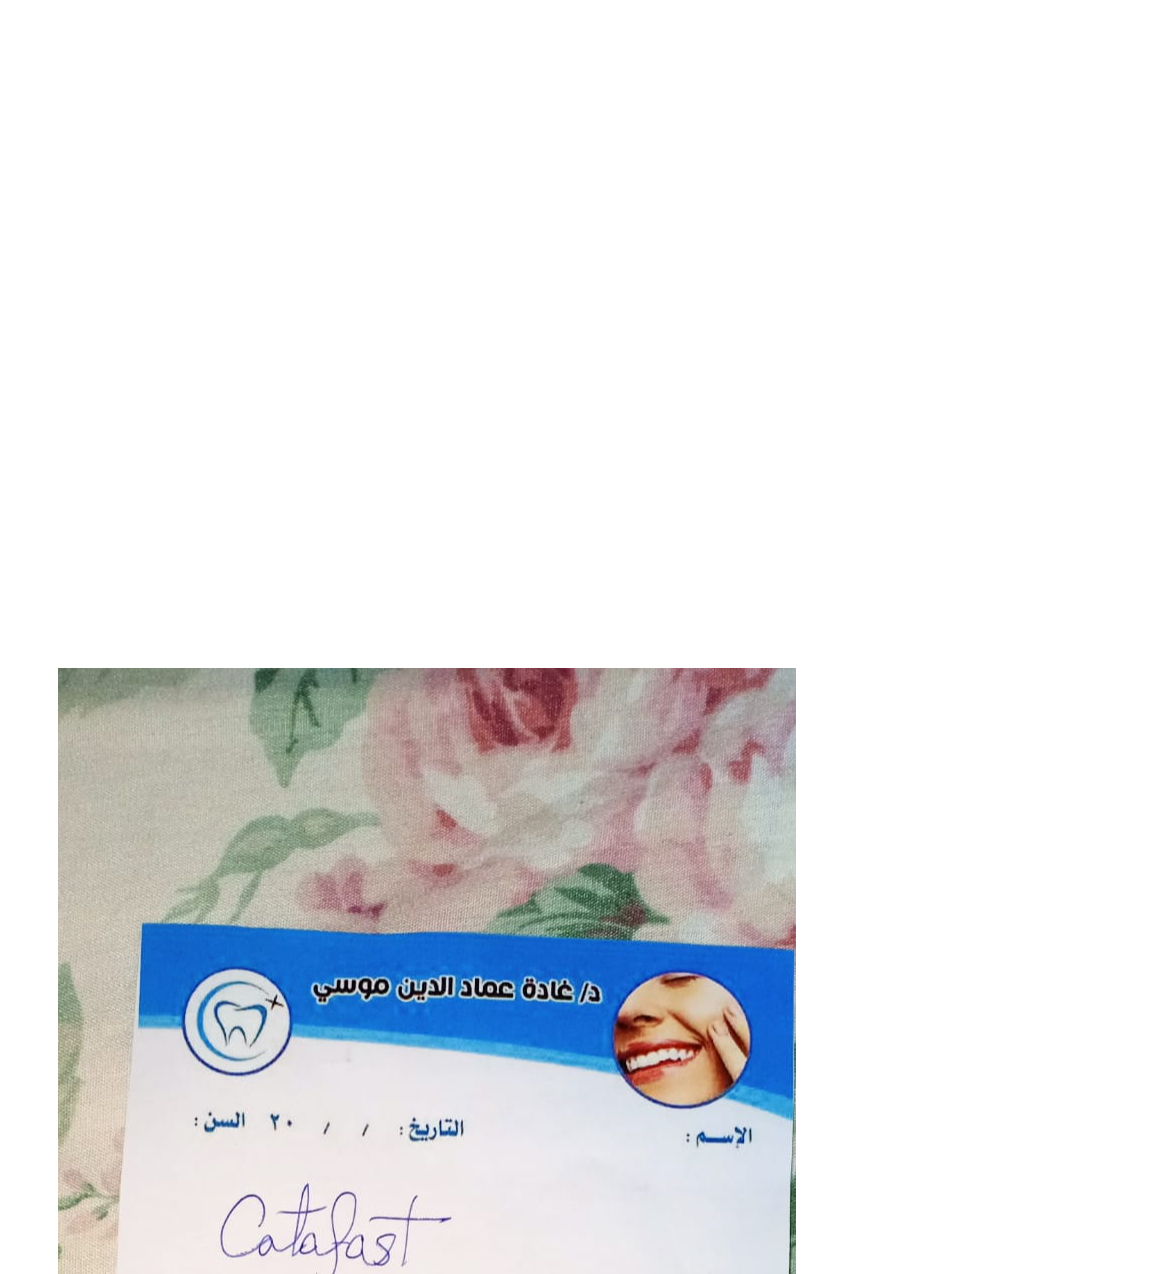 د/ غادة عماد الدين موسي
الإســم : التاريخ : / / ٢٠ السن :
Catafast